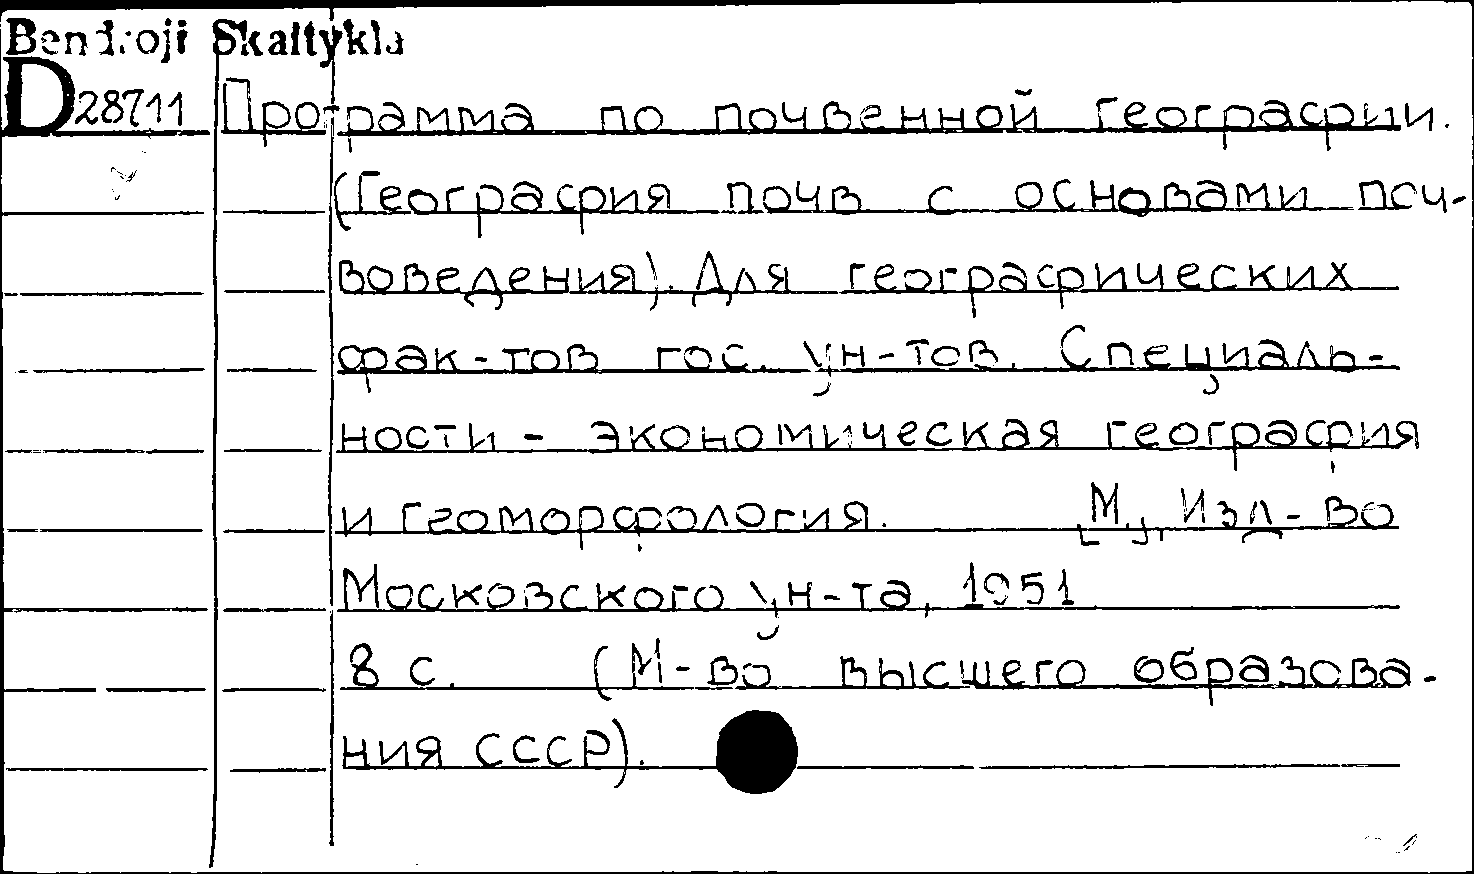 Bendroji Skaitykla
D28711 Программа по почвенной географии.
(География почв с основами поч-
воведения). Для географических
фак-тов гос. ун-тов. Специаль-
ности - экономическая география
и геоморфология. [М.], Изд-во
Московского ун-та, 1951
8 с. (М-во высшего образова-
ния СССР).